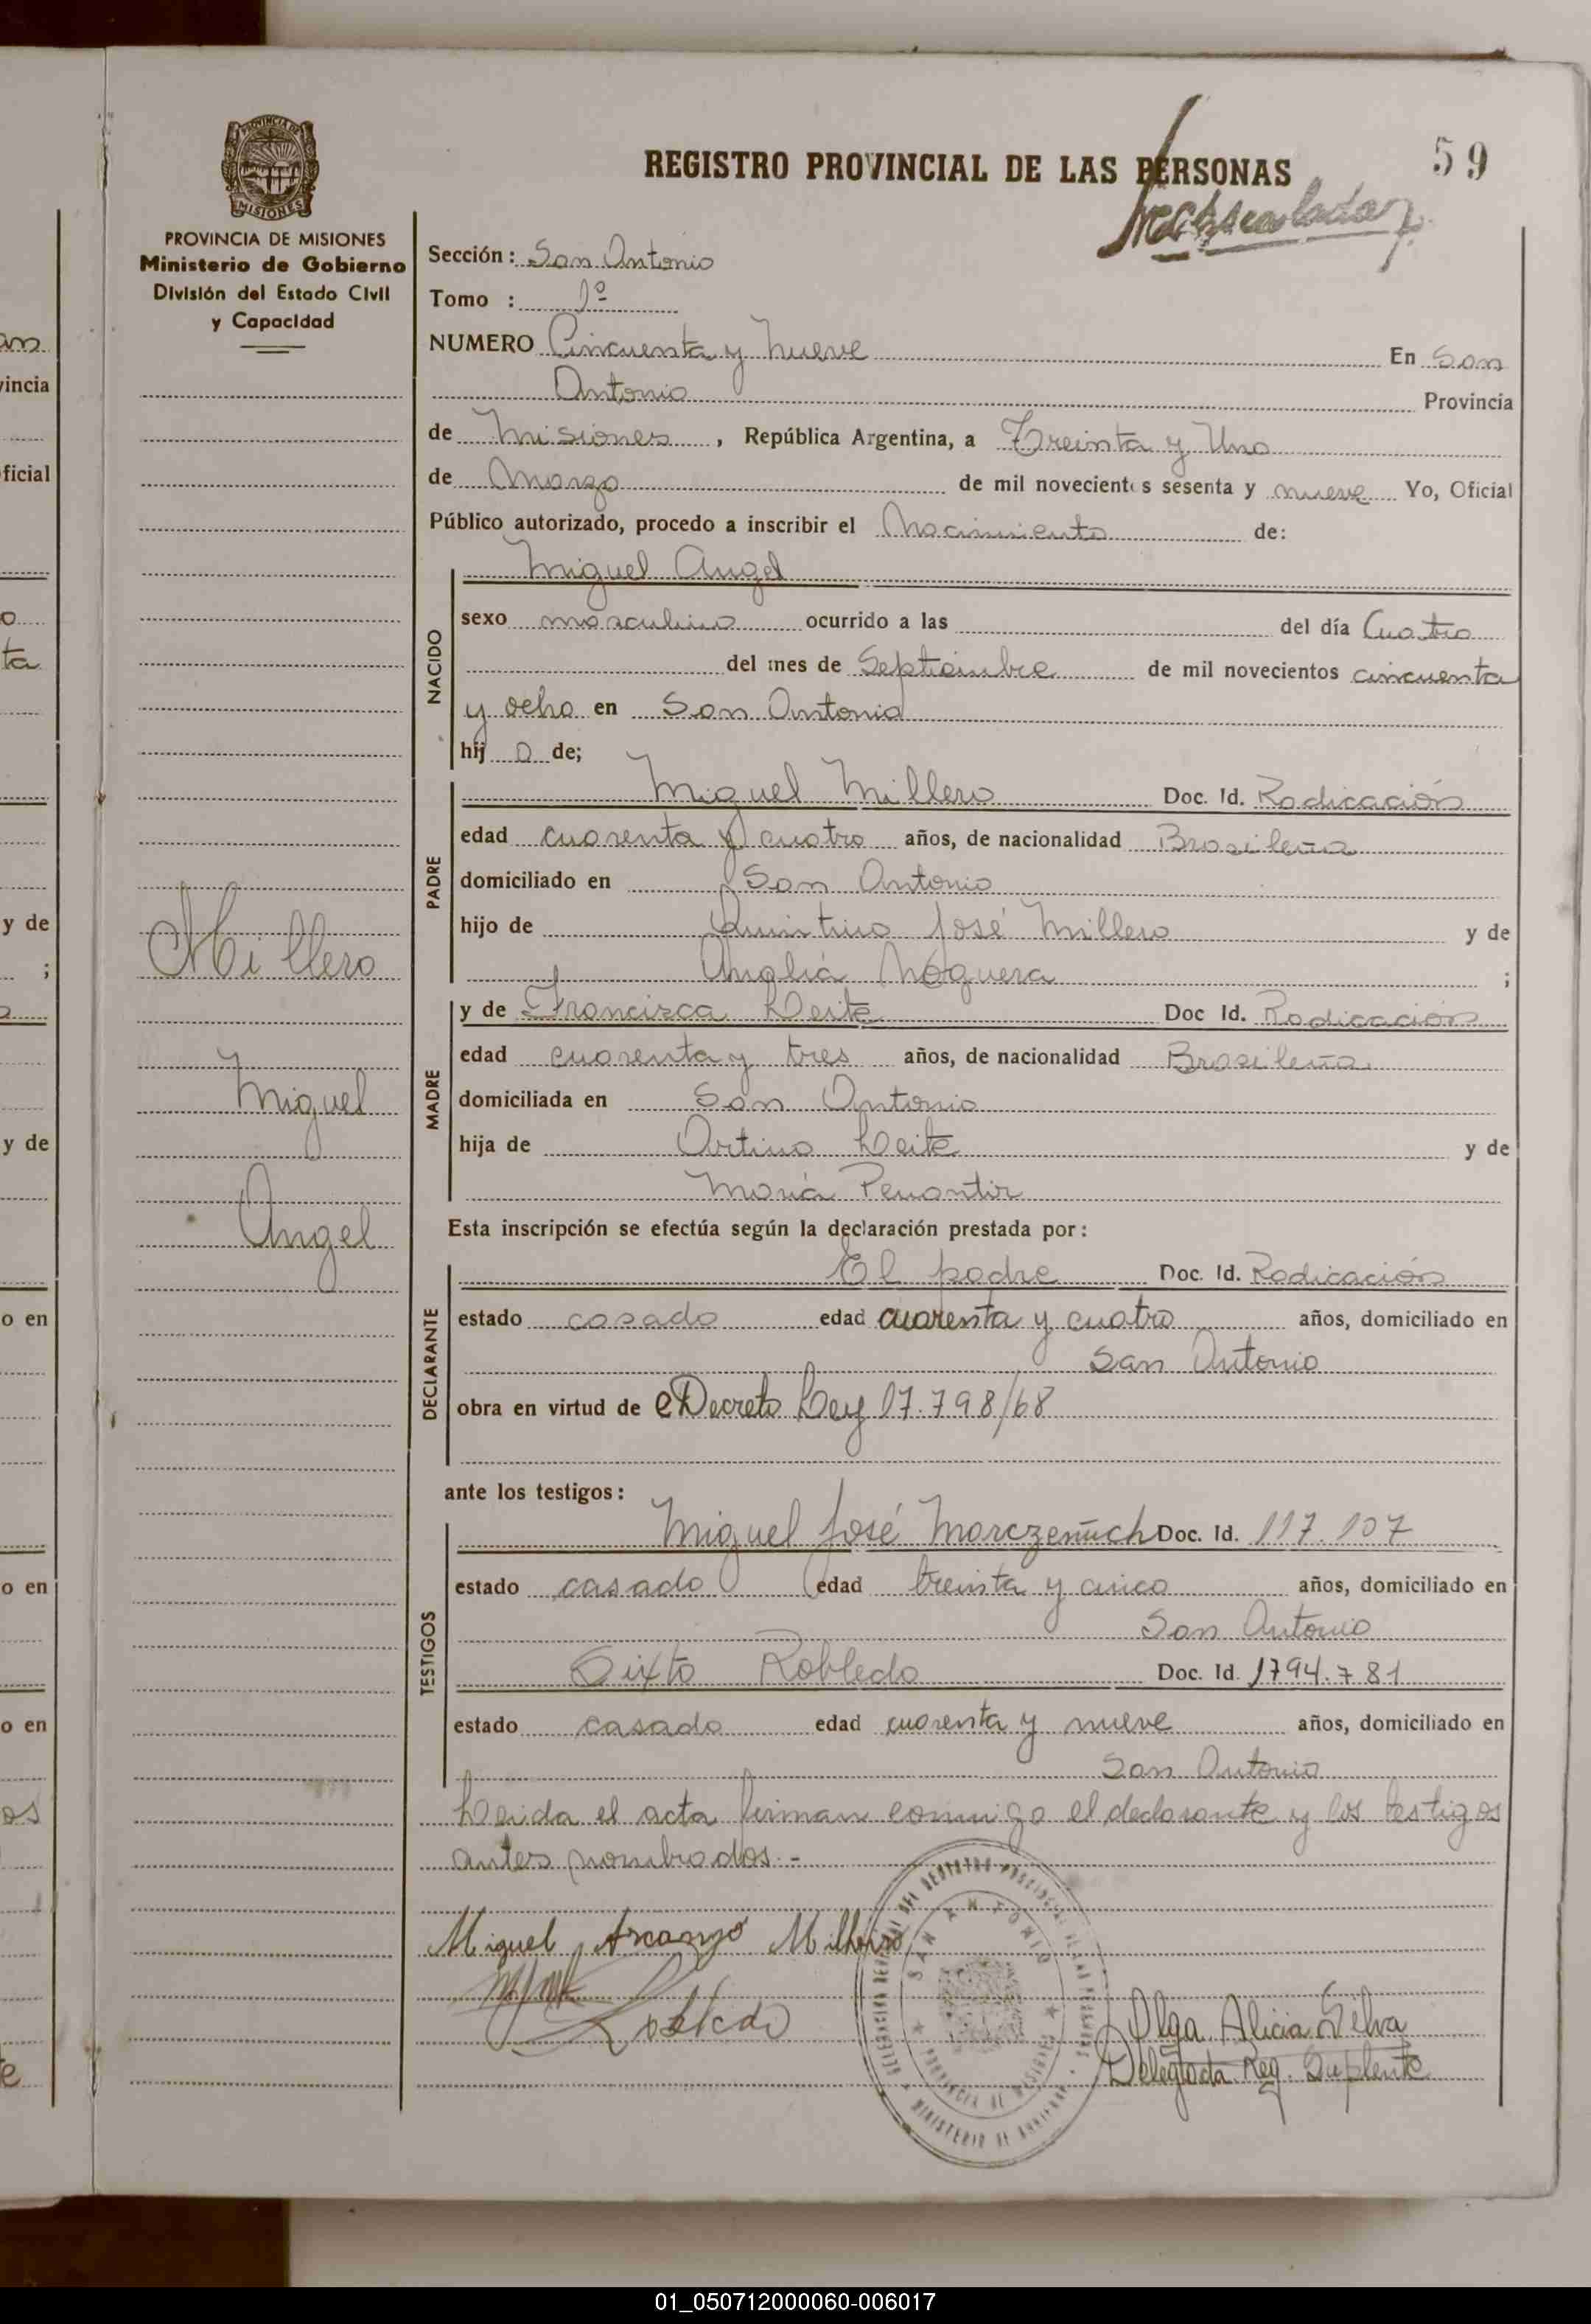 59
REGISTRO PROVINCIAL DE LAS PERSONAS
PROVINCIA DE MISIONES
Ministerio de Gobierno
División del Estado Civil
y Capacidad
Sección: San Antonio
Tomo : 1º
NUMERO Cincuenta y Nueve En San
Antonio Provincia
de Misiones, República Argentina, a Treinta y Uno
de Marzo de mil novecientos sesenta y nueve Yo, Oficial
Público autorizado, procedo a inscribir el Nacimiento de:
Miguel Angel
NACIDO
sexo masculino ocurrido a las del día Cuatro
del mes de Septiembre de mil novecientos cincuenta
y ocho en San Antonio
hij o de;
PADRE
Miguel Millero Doc. Id. Radicación
edad cuarenta y cuatro años, de nacionalidad Brasileña
domiciliado en San Antonio
hijo de Quintino José Millero y de
Analiá Noguera ;
MADRE
y de Francisca Leite Doc Id. Radicación
edad cuarenta y tres años, de nacionalidad Brasileña
domiciliada en San Antonio
hija de Artino Leite y de
María
Millero
Miguel
Angel
Esta inscripción se efectúa según la declaración prestada por:
DECLARANTE
El padre Doc. Id. Radicación
estado casado edad cuarenta y cuatro años, domiciliado en
San Antonio
obra en virtud de Decreto Ley 17.798/68
ante los testigos:
TESTIGOS
Miguel José Doc. Id. 117.107
estado casado edad treinta y cinco años, domiciliado en
San Antonio
Sixto Robledo Doc. Id. 1794.781
estado casado edad cuarenta y nueve años, domiciliado en
San Antonio
Leida el acta firman conmigo el declarante y los testigos
antes nombrados.-
Miguel Arcanjo Milheiro
Robledo
SAN ANTONIO
PROVINCIA DE MISIONES
Olga Alicia Silva
Delegada Reg. Suplente
01_050712000060-006017